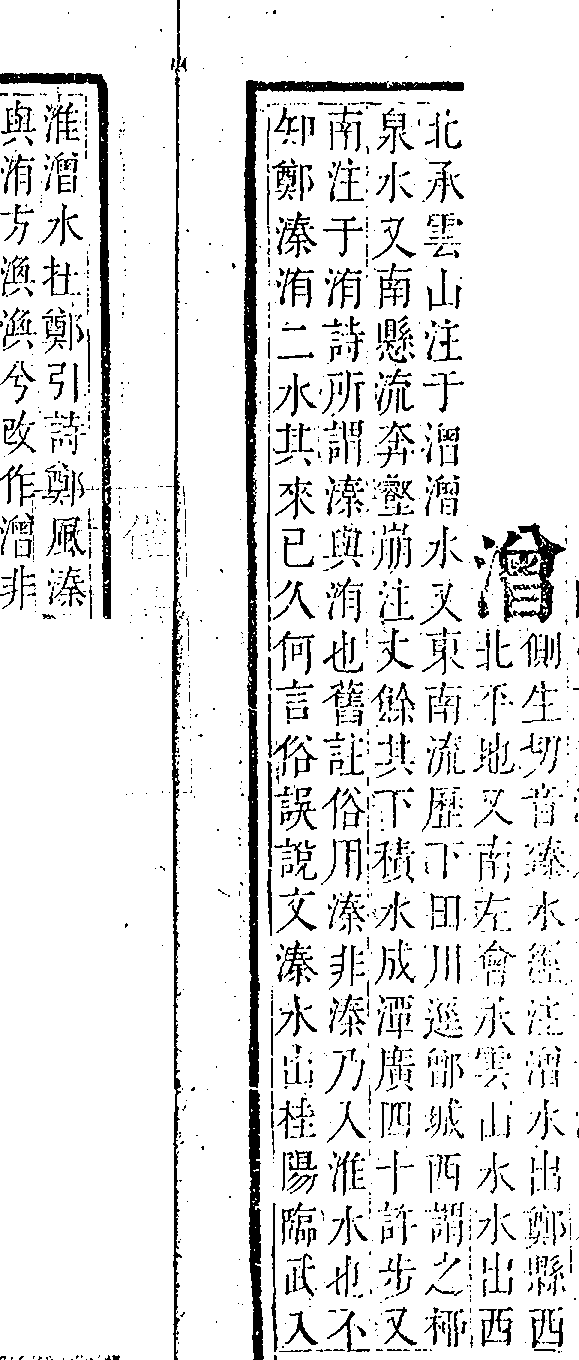 潧
側生切音臻水經注潧水出鄶縣西
北平地又南左會承雲山水水出西
北承雲山注于潧潧水又東南流歷下田川逕鄶城西謂之柳
泉水又南懸流奔壑崩注丈餘其下積水成潭廣四十許步又
南注于洧詩所謂溱與洧也舊註俗用溱非溱乃入淮水也不
知鄭溱洧二水其來已久何言俗誤說文溱水出桂陽臨武入
淮潧水在鄭引詩鄭風溱
與洧方渙渙兮改作潧非